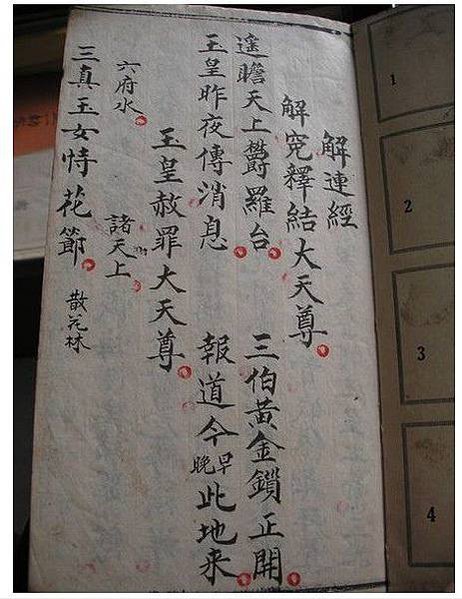 解連經
解寃釋結大天尊
遙瞻天上鬱羅台 三伯黃金鎖正開
玉皇昨夜傳消息 報道今早晚此地来
玉皇赦罪大天尊
六府水 諸天上
三真玉女恃花節 散花林
1
2
3
4